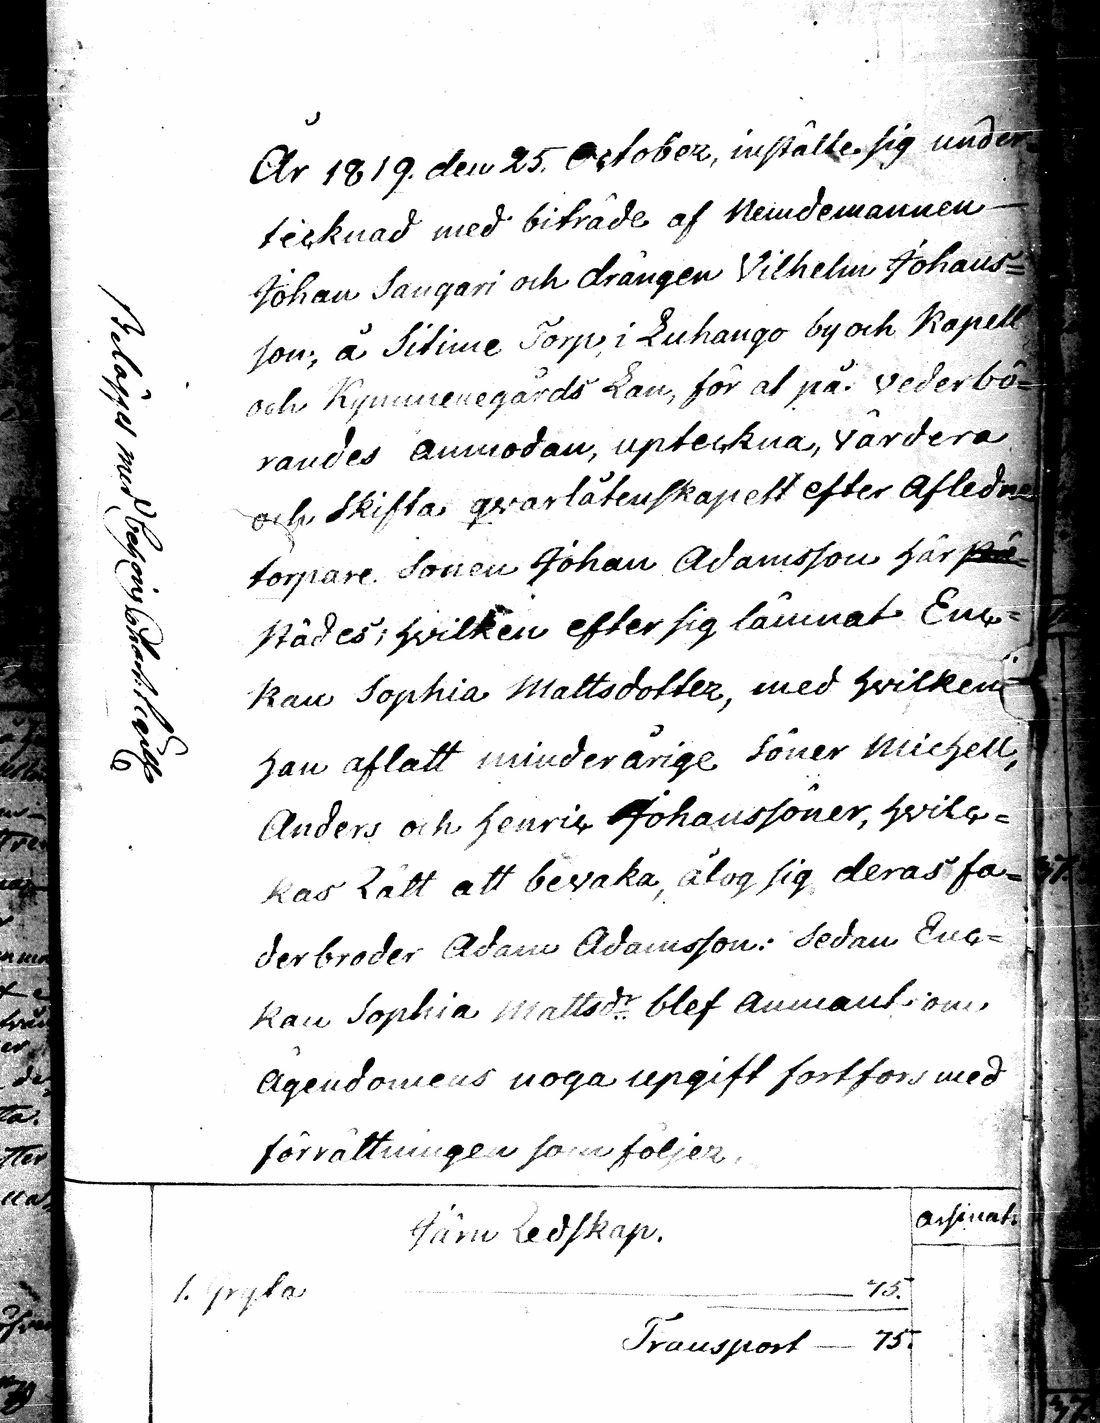 År 1819. den 25. October, instälte sig under-
tecknad med biträde af Nemdemannen —
Johan Sangari och drängen Vilhelm Johans=
son, å Sitime Torp, i Luhango by och Kapell
och Kymmenegårds Län, för at på vederbö=
randes anmodan, upteckna, värdera
och skifta qvarlåtenskapett efter Afledne
torpare Sonen Johan Adamsson här
städes; hvilken efter sig lämnat Enc=
kan Sophia Mattsdotter, med hvilken
han aflatt minderårige Söner Michell,
Anders och Henric Johanssöner, hvilc=
kas Rätt att bevaka, åtog sig deras fa=
derbroder Adam Adamsson: Sedan Enc=
kan Sophia Mattsdr blef anmant om
Ägendomens noga upgift fortfors med
förrättningen som följer.
Belägges med behörig Charta
Järn Redskap.
1. Gryta — 75.
Transport — 75.